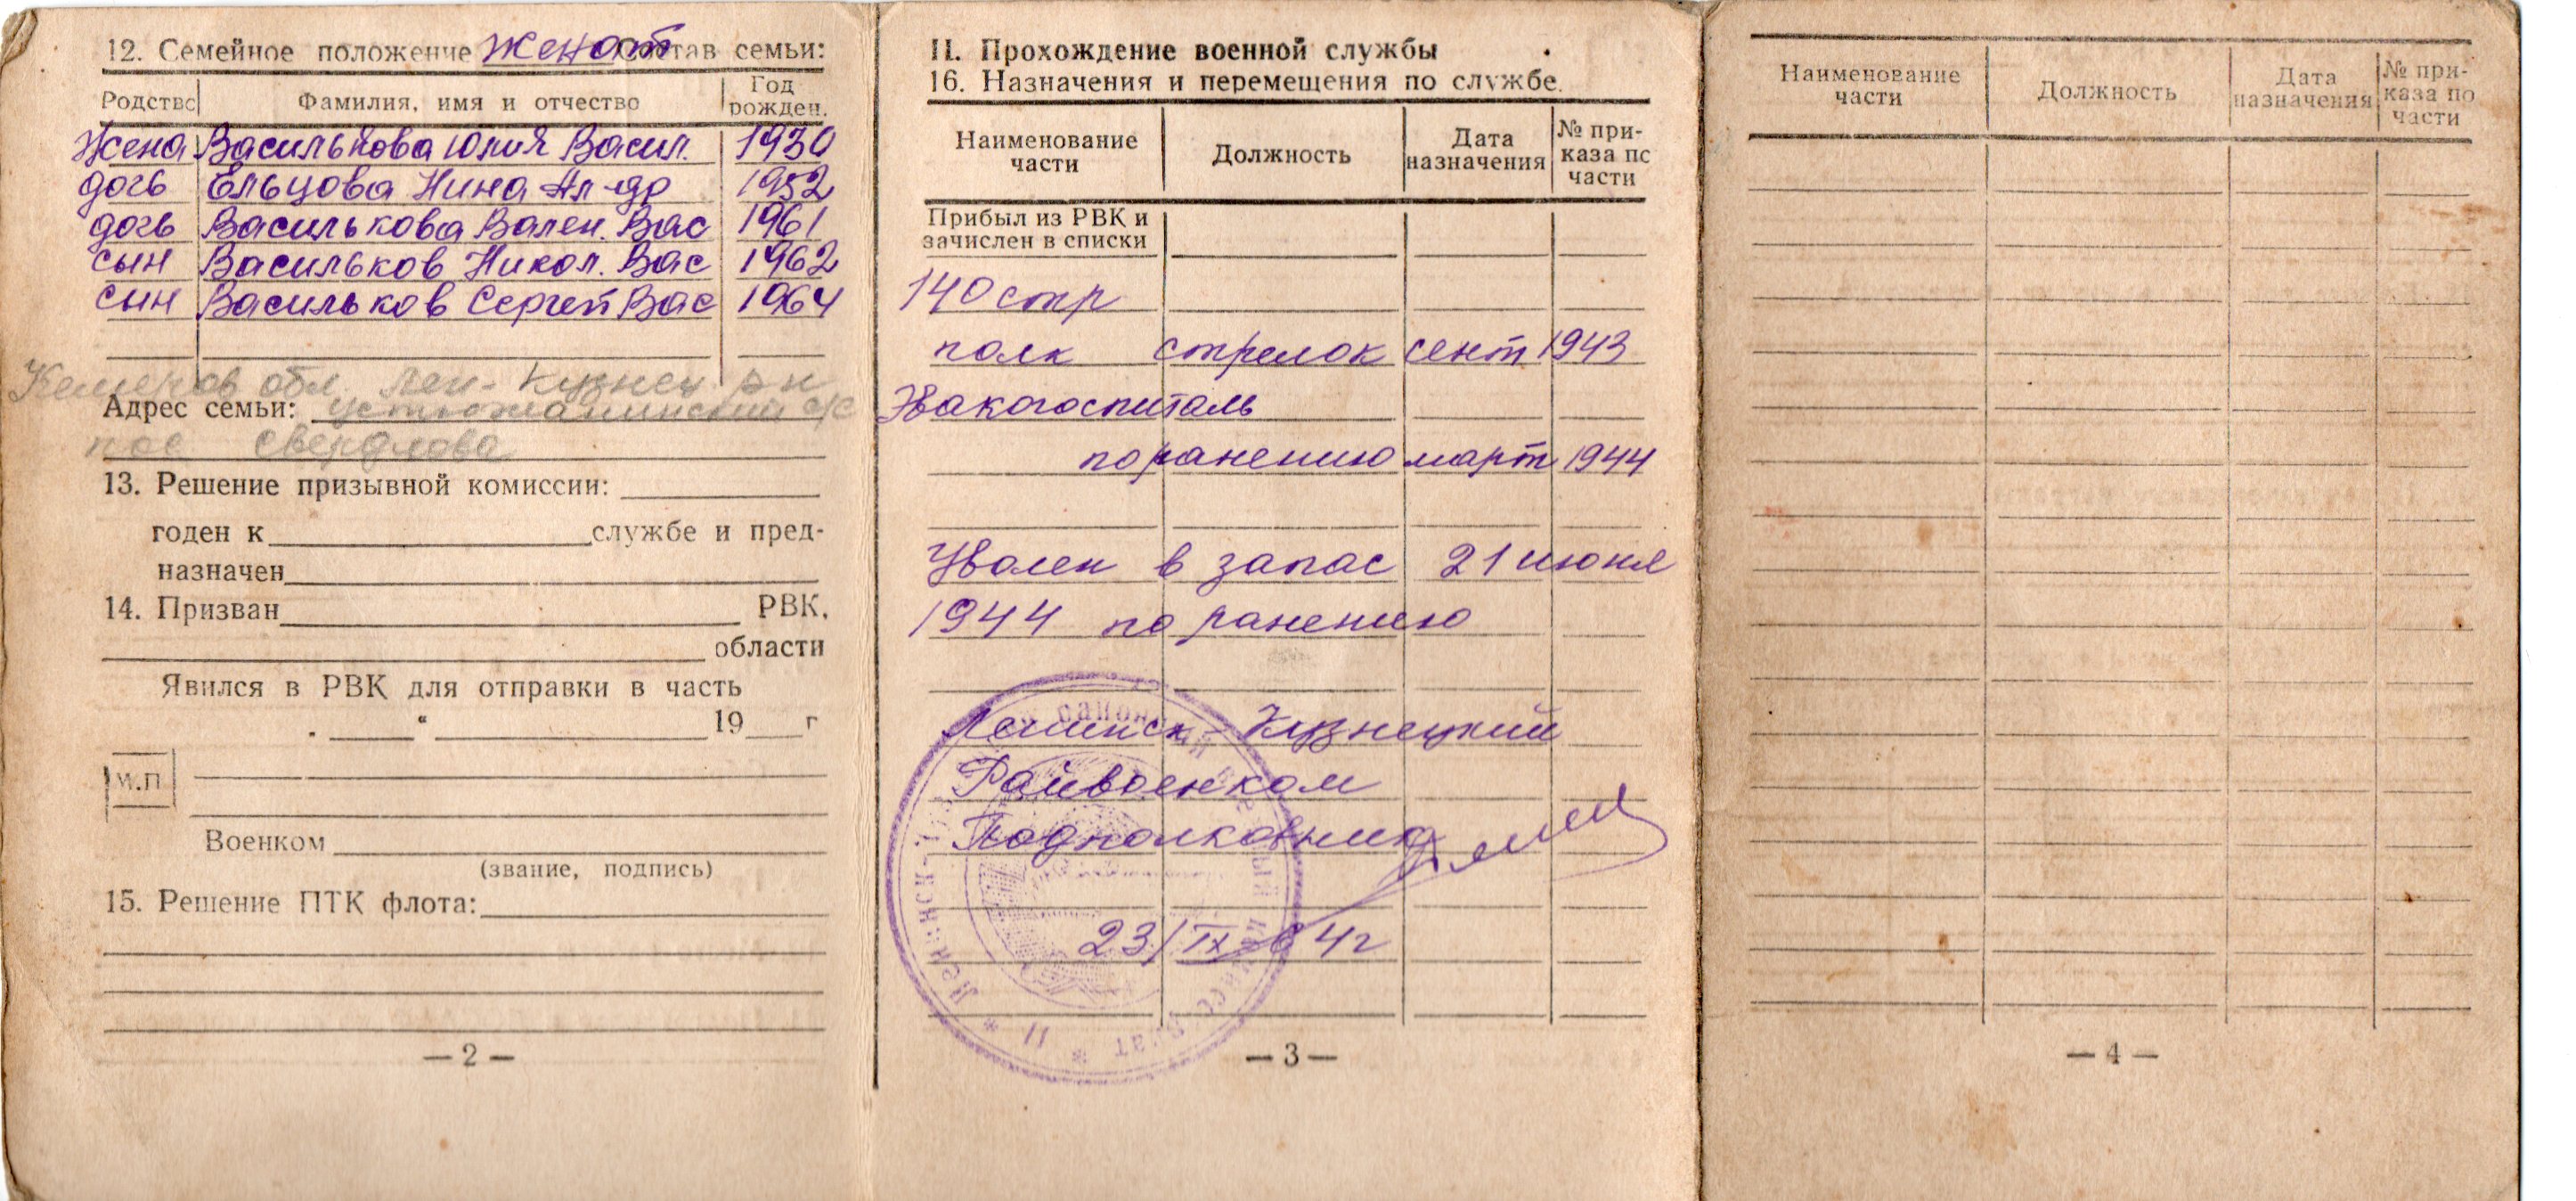 12. Семейное положение женат состав семьи:
Родство Фамилия, имя и отчество Год рожден.
Жена Василькова Юлия Васил. 1930
дочь Ельцова Нина Ал-др 1952
дочь Василькова Вален. Вас 1961
сын Васильков Никол. Вас 1962
сын Васильков Сергей Вас 1964
Кемеров обл. Лен-Кузнец. рн
Адрес семьи: с/с
пос Свердлова
13. Решение призывной комиссии:
годен к службе и пред-
назначен
14. Призван РВК,
области
Явился в РВК для отправки в часть
" 19 г
М.П.
Военком
(звание, подпись)
15. Решение ПТК флота:
— 2 —
II. Прохождение военной службы
16. Назначения и перемещения по службе.
Наименование части Должность Дата назначения № при-каза по части
Прибыл из РВК и
зачислен в списки
140 стр
полк стрелок сент 1943
Эвакогоспиталь
по ранению март 1944
Уволен в запас 21 июня
1944 по ранению
Ленинск-Кузнецкий
Райвоенком
Подполковник
23/IX 64г
— 3 —
Наименование части Должность Дата назначения № при-каза по части
— 4 —